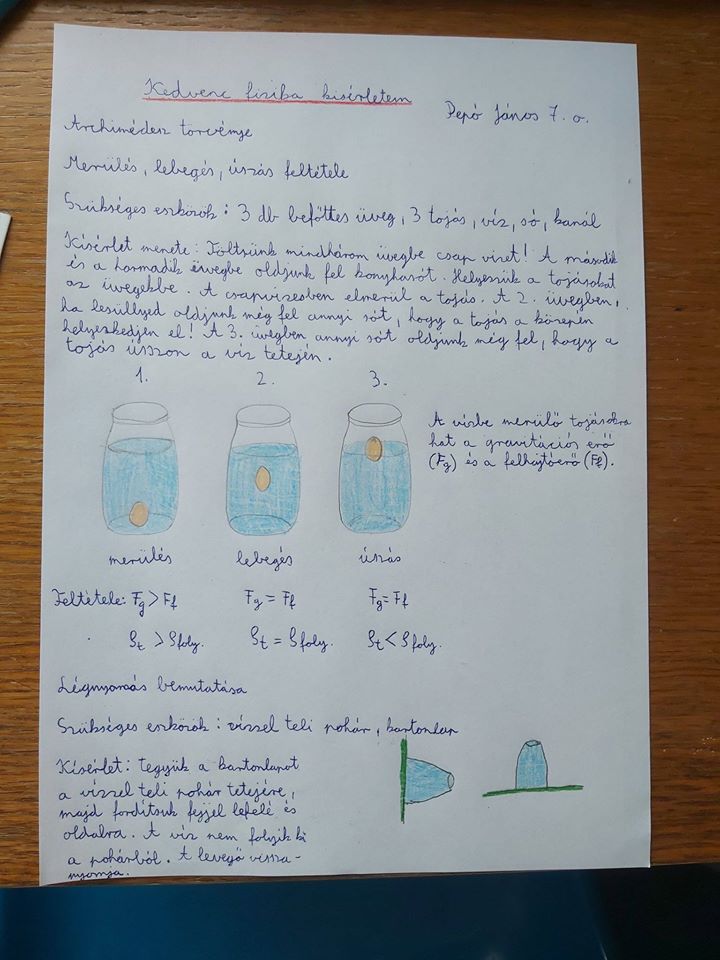 Kedvenc fizika kisérletem
Pepó János 7. o.
Archimédesz törvénye
Merülés, lebegés, úszás feltétele
Szükséges eszközök: 3 db befőttes üveg, 3 tojás, víz, só, kanál
Kísérlet menete: Töltsünk mindhárom üvegbe csap vizet! A második
és a harmadik üvegbe oldjunk fel konyhasót. Helyezzük a tojásokat
az üvegekbe. A csapvizesben elmerül a tojás. A 2. üvegben,
ha lesüllyed oldjunk még fel annyi sót, hogy a tojás a közepén
helyezkedjen el! A 3. üvegben annyi sót oldjunk még fel, hogy a
tojás ússzon a víz tetején.
1. 2. 3.
A vízbe merülő tojásokra
hat a gravitációs erő
(Fg) és a felhajtóerő (Ff).
merülés lebegés úszás
Feltétele: Fg > Ff Fg = Ff Fg = Ff
ρt > ρfoly. ρt = ρfoly. ρt < ρfoly.
Légnyomás bemutatása
Szükséges eszközök: vízzel teli pohár, kartonlap
Kísérlet: tegyük a kartonlapot
a vízzel teli pohár tetejére,
majd fordítsuk fejjel lefelé és
oldalra. A víz nem folyik ki
a pohárból. A levegő vissza-
nyomja.